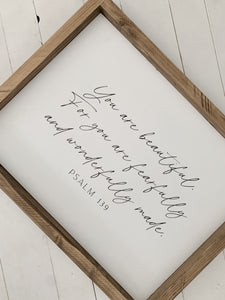 You are beautiful.
For you are fearfully
and wonderfully made.
PSALM 139